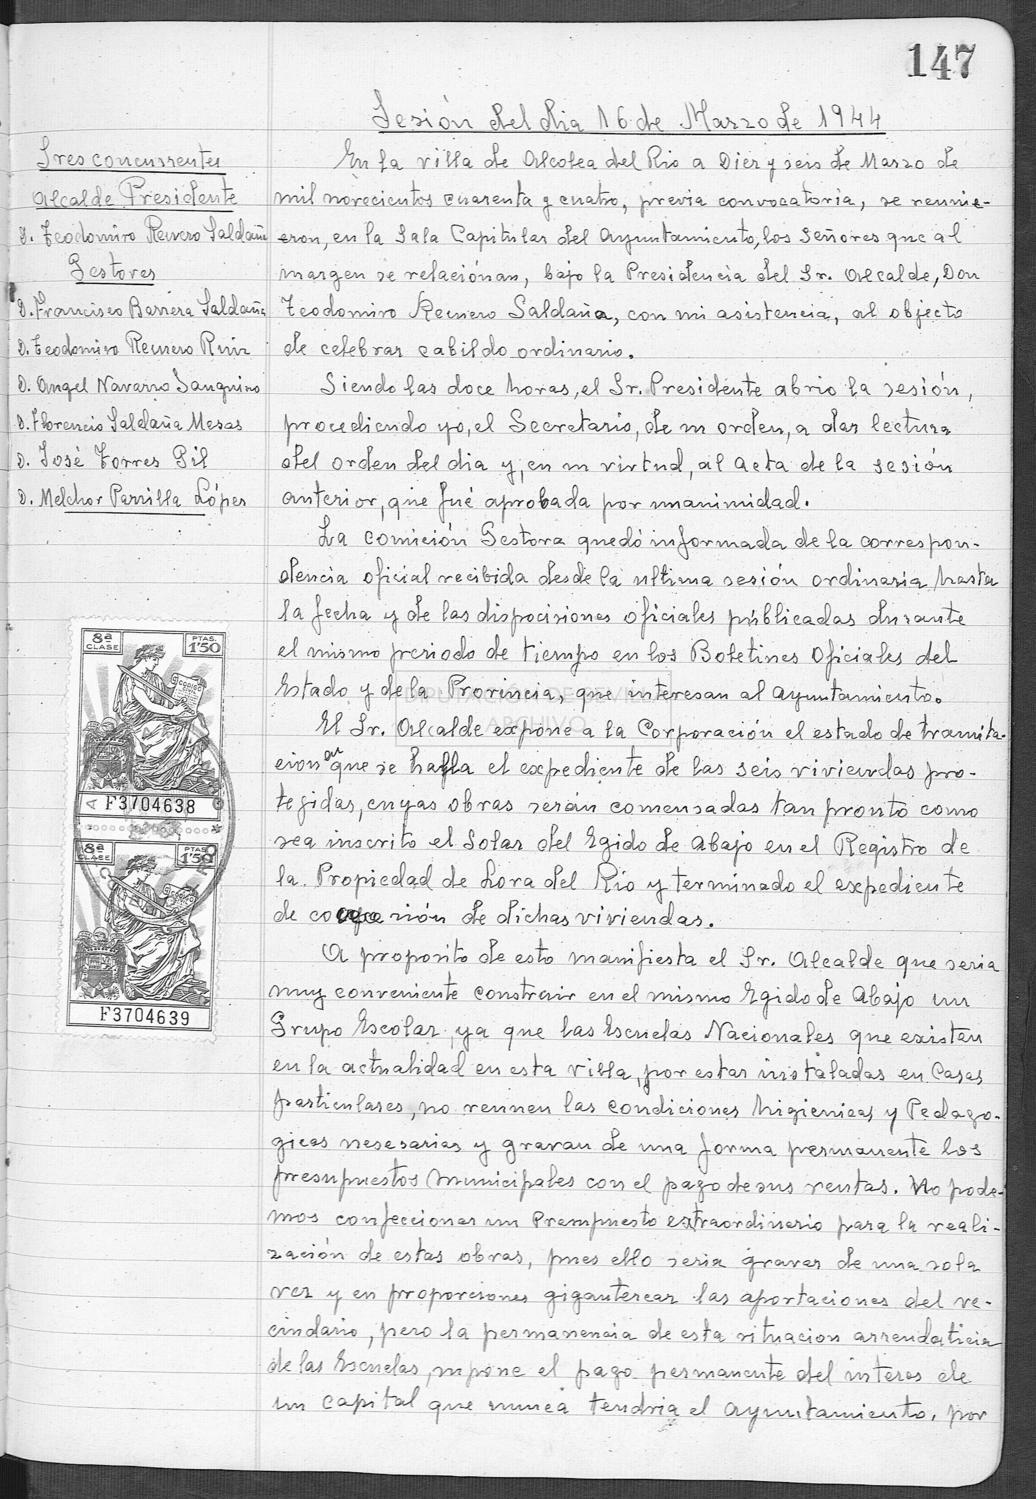 147
Sesión del dia 16 de Marzo de 1944
Sres concurrentes
Alcalde Presidente
D. Teodomiro Reinero Saldaña
Gestores
D. Francisco Barrera Saldaña
D. Teodomiro Reinero Ruiz
D. Angel Navarro Sanguino
D. Florencio Saldaña Mesas
D. José Torres Gil
D. Melchor Parrilla López
En la villa de Alcolea del Rio a Diez y seis de Marzo de
mil novecientos cuarenta y cuatro, previa convocatoria, se reunie-
eron, en la Sala Capitular del Ayuntamiento, los Señores que al
margen se relaciónan, bajo la Presidencia del Sr. Alcalde, Don
Teodomiro Reinero Saldaña, con mi asistencia, al objecto
de celebrar cabildo ordinario.
Siendo las doce horas, el Sr. Presidente abrio la sesión,
procediendo yo, el Secretario, de su orden, a dar lectura
del orden del dia y, en su virtud, al acta de la sesión
anterior, que fué aprobada por unanimidad.
La comición Gestora quedó informada de la correspon-
dencia oficial recibida desde la ultima sesión ordinaria hasta
la fecha y de las dispociciones oficiales públicadas durante
el mismo periodo de tiempo en los Boletines Oficiales del
Estado y de la Provincia, que interesan al Ayuntamiento.
El Sr. Alcalde expone a la Corporación el estado de tramita-
cion en que se halla el expediente de las seis viviendas pro-
tegidas, cuyas obras serán comensadas tan pronto como
sea inscrito el Solar del Egido de Abajo en el Registro de
la Propiedad de Lora del Río y terminado el expediente
de de dichas viviendas.
A proposito de esto manifiesta el Sr. Alcalde que seria
muy conveniente construir en el mismo Egido de Abajo un
Grupo Escolar, ya que las Escuelas Nacionales que existen
en la actualidad en esta villa, por estar instaladas en Casas
particulares, no reunen las condiciones higienicas y Pedago-
gicas nesesarias y gravan de una forma permanente los
presupuestos Municipales con el pago de sus rentas. No pode-
mos confeccionar un Presupuesto extraordinario para la reali-
zación de estas obras, pues ello seria gravar de una sola
vez y en proporciones gigantescas las aportaciones del ve-
cindario, pero la permanencia de esta situacion arrendaticia
de las Escuelas, supone el pago permanente del interes de
un capital que nunca tendria el Ayuntamiento, por
8ª CLASE
PTAS. 1'50
CODIGO
A F3704638
8ª CLASE
PTAS 1'50
CODIGO
F3704639
DIPUTACIÓN DE SEVILLA
ARCHIVO